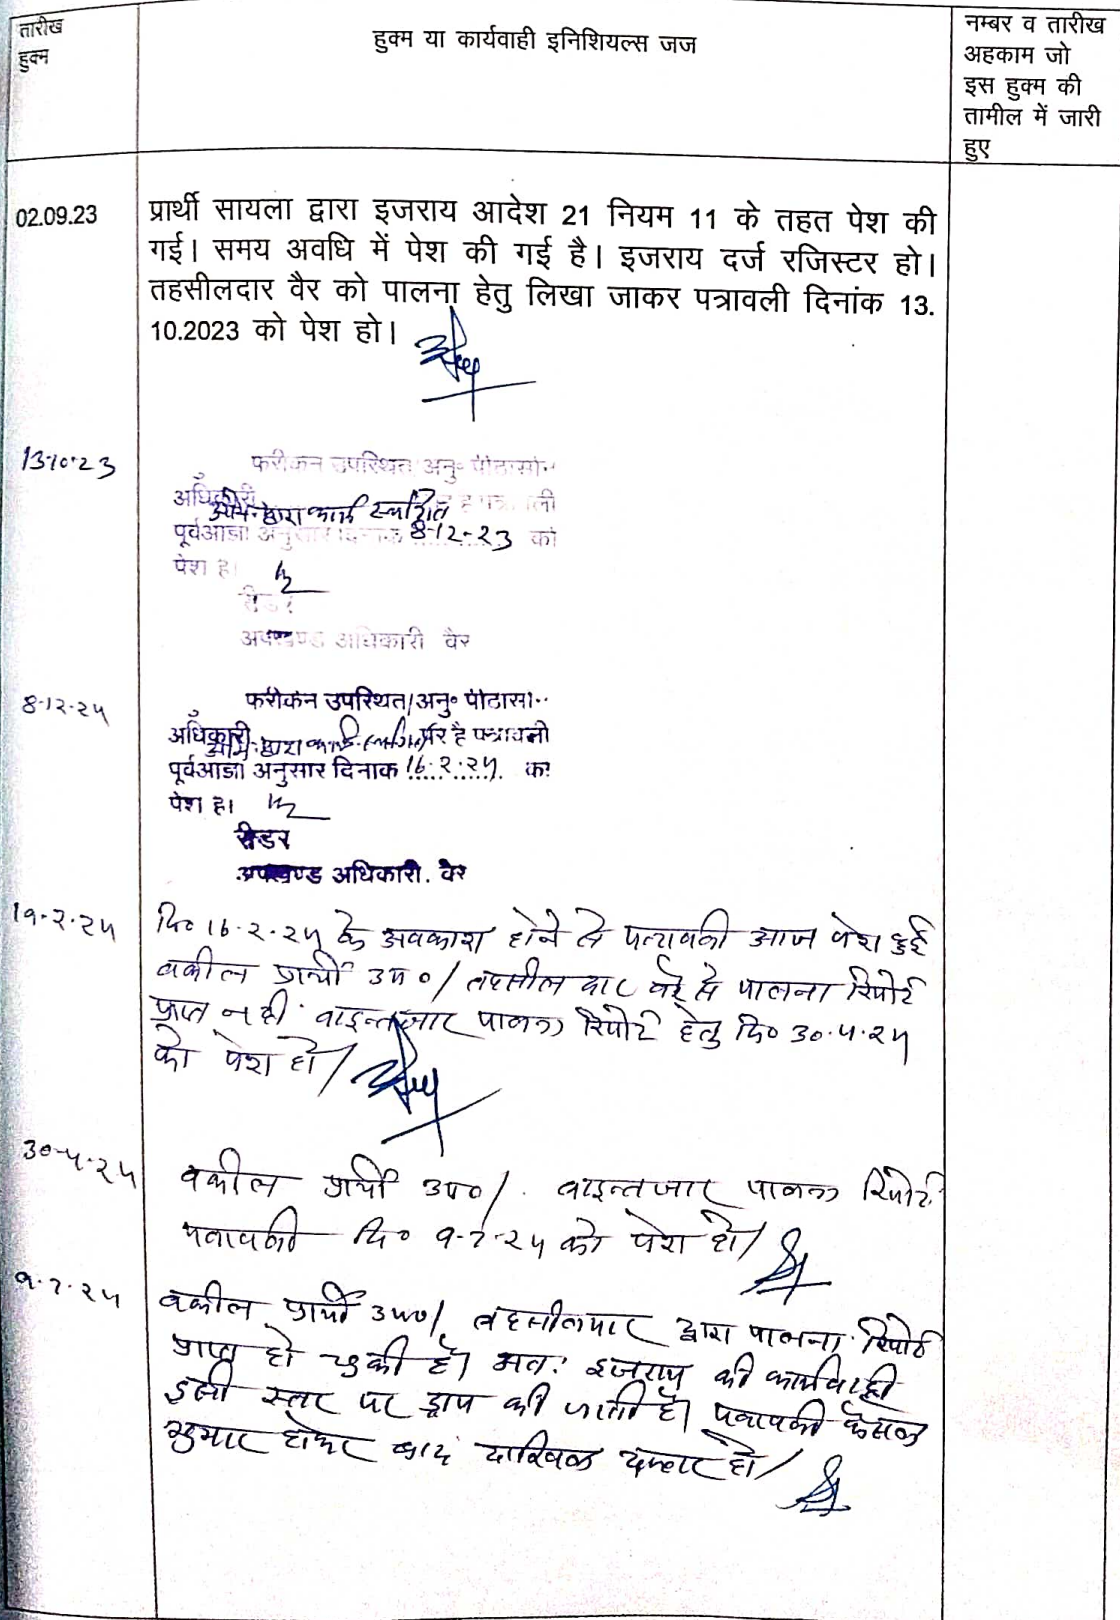 तारीख
हुक्म
हुक्म या कार्यवाही इनिशियल्स जज
नम्बर व तारीख
अहकाम जो
इस हुक्म की
तामील में जारी
हुए
02.09.23
प्रार्थी सायला द्वारा इजराय आदेश 21 नियम 11 के तहत पेश की
गई। समय अवधि में पेश की गई है। इजराय दर्ज रजिस्टर हो।
तहसीलदार वैर को पालना हेतु लिखा जाकर पत्रावली दिनांक 13.
10.2023 को पेश हो।
13-10-23
फरीकन उपस्थित/अनु॰ पीठासी..
अधिकारी
द्वारा कार्य स्थगित
पूर्वआज्ञा अनुसार दिनाक 8-12-23 को
पेश ह।
रीडर
अधिकारी वैर
8-12-24
फरीकन उपस्थित/अनु॰ पीठासी..
अधिकारी पर है पत्रावली
पूर्वआज्ञा अनुसार दिनाक 16.2.24 क
पेश ह।
रीडर
अधिकारी. वैर
19-2-24
दि० 16.2.24 के अवकाश होने से पत्रावली आज पेश हुई
वकील प्रार्थी उप०/ तहसीलदार वैर से पालना रिपोर्ट
प्राप्त नहीं. वाइन्तजार पालना रिपोर्ट हेतु दि० 30.4.24
को पेश हो/
30-4-24
वकील प्रार्थी उप०/. वाइन्तजार पालना रिपोर्ट
पत्रावली दि० 9-7-24 को पेश हो/
9.7.24
वकील प्रार्थी उप०/ तहसीलदार द्वारा पालना रिपोर्ट
प्राप्त हो चुकी है। अतः इजराय की कार्यवाही
इसी स्तर पर ड्राप की जाती है। पत्रावली फैसल
शुमार होकर बाद दाखिल दफ्तर हो/